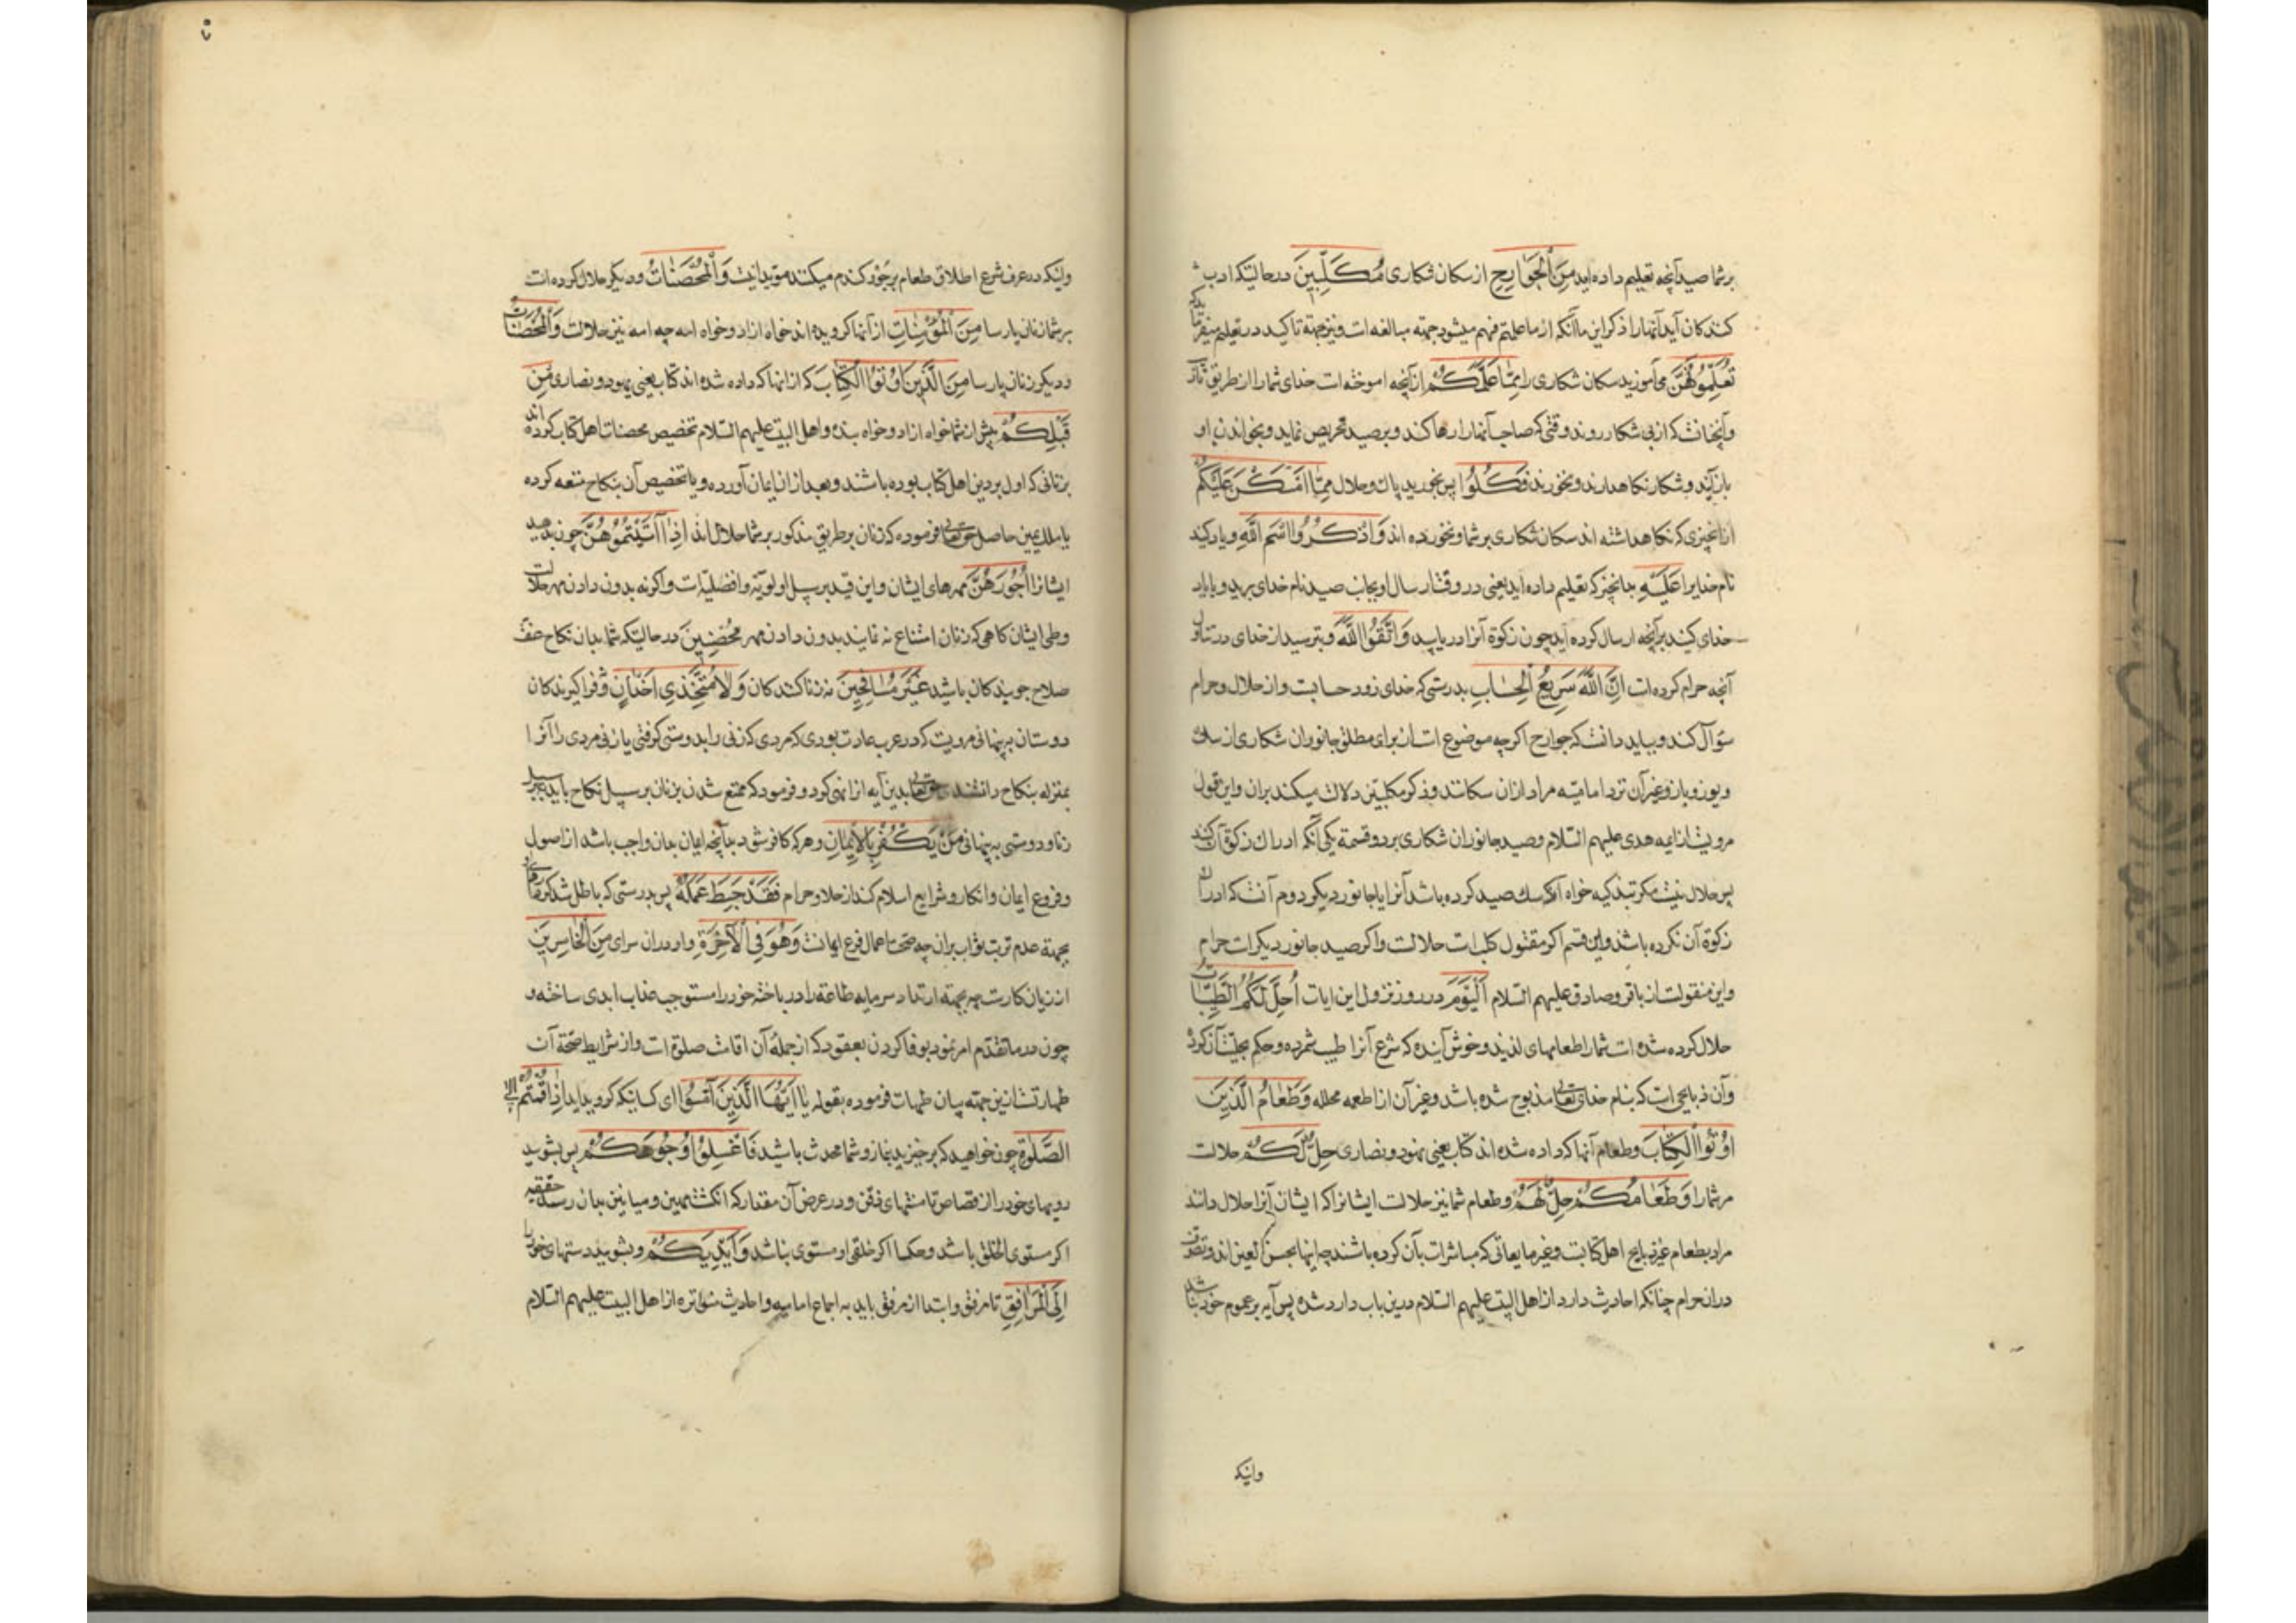 بر شما صید آنچه تعلیم داده اید مِنَ الْجَوَارِحِ از سکان شکاری مُكَلِّبِينَ در حالتیکه ادب
کنندکان آید آنهارا ذکر این با آنکه از ما علمتم فهم میشود جهته مبالغه است و نیز جهته تاکید در تعلیم
تُعَلِّمُونَهُنَّ می آموزید سکان شکاری را مِمَّا عَلَّمَكُمُ از آنچه اموخته است خدای شما را از طریق
و آنچنانست که از پی شکار روند وقتی که صاحب آنها را رها کند و بر صید تحریص نماید و بخواندن او
باز آیند و شکار نکاهدارند و نخورند فَكُلُوا پس بخورید پاک و حلال مِمَّا أَمْسَكْنَ عَلَيْكُمْ
از انچیزی که نکاهداشته اند سکان شکاری بر شما و نخورده اند وَاذْكُرُوا اسْمَ اللَّهِ و یاد کنید
نام خدایرا عَلَيْهِ بدانچیز که تعلیم داده اید یعنی در وقت ارسال او بجانب صید نام خدای برید و یا یاد
خدای کنید بر آنچه ارسال کرده آید چون زکوة آنرا دریابید وَاتَّقُوا اللَّهَ و بترسید از خدای در تناول
آنچه حرام کرده است إِنَّ اللَّهَ سَرِيعُ الْحِسَابِ بدرستی که خدای زود حسابست و از حلال و حرام
سؤال کند و بباید دانست که جوارح اکرچه موضوع است از برای مطلق جانوران شکاری از سک
و یوز و باز و غیر آن نزد امامیّه مراد ازان سکانند و ذکر مکلبین دلالت میکند بران و این قول
مرویست از ایمه هدی علیهم السّلام و صید جانوران شکاری بر دو قسمة یکی آنکه ادراک زکوة آن کند
پس حلال نیست مکر بتذکیه خواه آنکه سک صید کرده باشد آنرا یا جانور دیکر دوم آنست که ادراک
زکوة آن نکرده باشد و این قسم اکر مقتول کلب است حلالست و اکر صید جانور دیکر است حرام
و این منقولست از باقر و صادق علیهم السّلام الْيَوْمَ در روز نزول این ایات أُحِلَّ لَكُمُ الطَّيِّبَاتُ
حلال کرده شده است شما را طعامهای لذیذ و خوش آینده که شرع آنرا طیب شمرده و حکم بحلیّت آن کرده
و آن ذبایحی است که بنام خدای تعالی مذبوح شده باشد و غیر آن از اطعمه محلله وَطَعَامُ الَّذِينَ
أُوتُوا الْكِتَابَ و طعام آنها که داده شده اند کتاب یعنی یهود و نصاری حِلٌّ لَكُمْ حلالست
مر شما را وَطَعَامُكُمْ حِلٌّ لَهُمْ و طعام شما نیز حلالست ایشانرا که ایشان آنرا حلال دانند
مراد بطعام غیر ذبایح اهل کتابست و غیر مایعاتی که مباشرت بآن کرده باشند چه اینها نجس العین اند و تصرّف
دران حرام چنانکه احادیث دارد از اهل البیت علیهم السّلام درین باب وارد شده پس آیه بر عموم خود نباشد
وانیکه
وانیکه در عرف شرع اطلاق طعام بر جَو و کندم میکند مؤید اینست وَالْمُحْصَنَاتُ و دیکر حلال کرده است
بر شما زنان پارسا مِنَ الْمُؤْمِنَاتِ از آنها کرویده اند خواه ازاد و خواه امه چه امه نیز حلالست وَالْمُحْصَنَاتُ
و دیکر زنان پارسا مِنَ الَّذِينَ أُوتُوا الْكِتَابَ که از انها که داده شده اند کتاب یعنی یهود و نصاری مِنْ
قَبْلِكُمْ پیش از شما خواه ازاد و خواه بنده و اهل البیت علیهم السّلام تخصیص محصنات اهل کتاب کرده اند
بزنانی که اول بر دین اهل کتاب بوده باشند و بعد ازان ایمان آورده و یا تخصیص آن بنکاح متعه کرده
یا بملک یمین حاصل حقتعالی فرموده که زنان بر طریق مذکور بر شما حلال اند إِذَا آتَيْتُمُوهُنَّ چون بدهید
ایشانرا أُجُورَهُنَّ مهرهای ایشان و این قید بر سبیل اولویّة و افضلیّت است و اکرنه بدون دادن مهر حلالست
وطی ایشان کاهی که زنان امتناع نه نمایند بدون دادن مهر مُحْصِنِينَ در حالتیکه شما بدان نکاح عفّت
صلاح جویندکان باشید غَيْرَ مُسَافِحِينَ نه زنا کنندکان وَلَا مُتَّخِذِي أَخْدَانٍ و فرا کیرندکان
دوستان بپنهانی مرویست که در عرب عادت بودی که مردی که زنی را بدوستی کرفتی یا زنی مردی را آنرا
بمنزله بنکاح دانستند حقتعالی بدین آیه ازا نهی کرد و فرمود که ممتع شدن بزنان بر سبیل نکاح باید نه بر سبیل
زنا و دوستی به پنهانی وَمَنْ يَكْفُرْ بِالْإِيمَانِ و هر که کافر شود بدآنچه ایمان بدان واجب باشد از اصول
و فروع ایمان و انکار و شرایع اسلام کند از حلال و حرام فَقَدْ حَبِطَ عَمَلُهُ پس بدرستی که باطل شد کردار او
بجهتة عدم ترتب ثواب بران چه صحت اعمال فرع ایمانست وَهُوَ فِي الْآخِرَةِ و او در ان سرای مِنَ الْخَاسِرِينَ
از زیان کارنست چه بجهتة ارتداد سرمایه طاعة را در باخته خود را مستوجب عذاب ابدی ساخته و
چون در ما تقدّم امر نمود بوفا کردن بعقود که از جملهٔ آن اقامت صلوة است و از شرایط صحّة آن
طهارتست ازین جهته بیان طهارت فرموده بقوله يَا أَيُّهَا الَّذِينَ آمَنُوا ای کسانیکه کرویده اید إِذَا قُمْتُمْ إِلَى
الصَّلَوةِ چون خواهید که برخیزید بنماز و شما محدث باشید فَاغْسِلُوا وُجُوهَكُمْ پس بشویید
رویهای خود را از قصاص تا منتهای ذقن و در عرض آن مقدار که انکشت مهین و میانین بدان رسد حقیقیه
اکر مستوی الخلق باشد و حکما اکر خلقی او مستوی نباشد وَأَيْدِيَكُمْ و بشویید دستهای خود را
إِلَى الْمَرَافِقِ تا مرفق و ابتدا از مرفق باید به اجماع امامیه و احادیث متواتره از اهل البیت علیهم السّلام